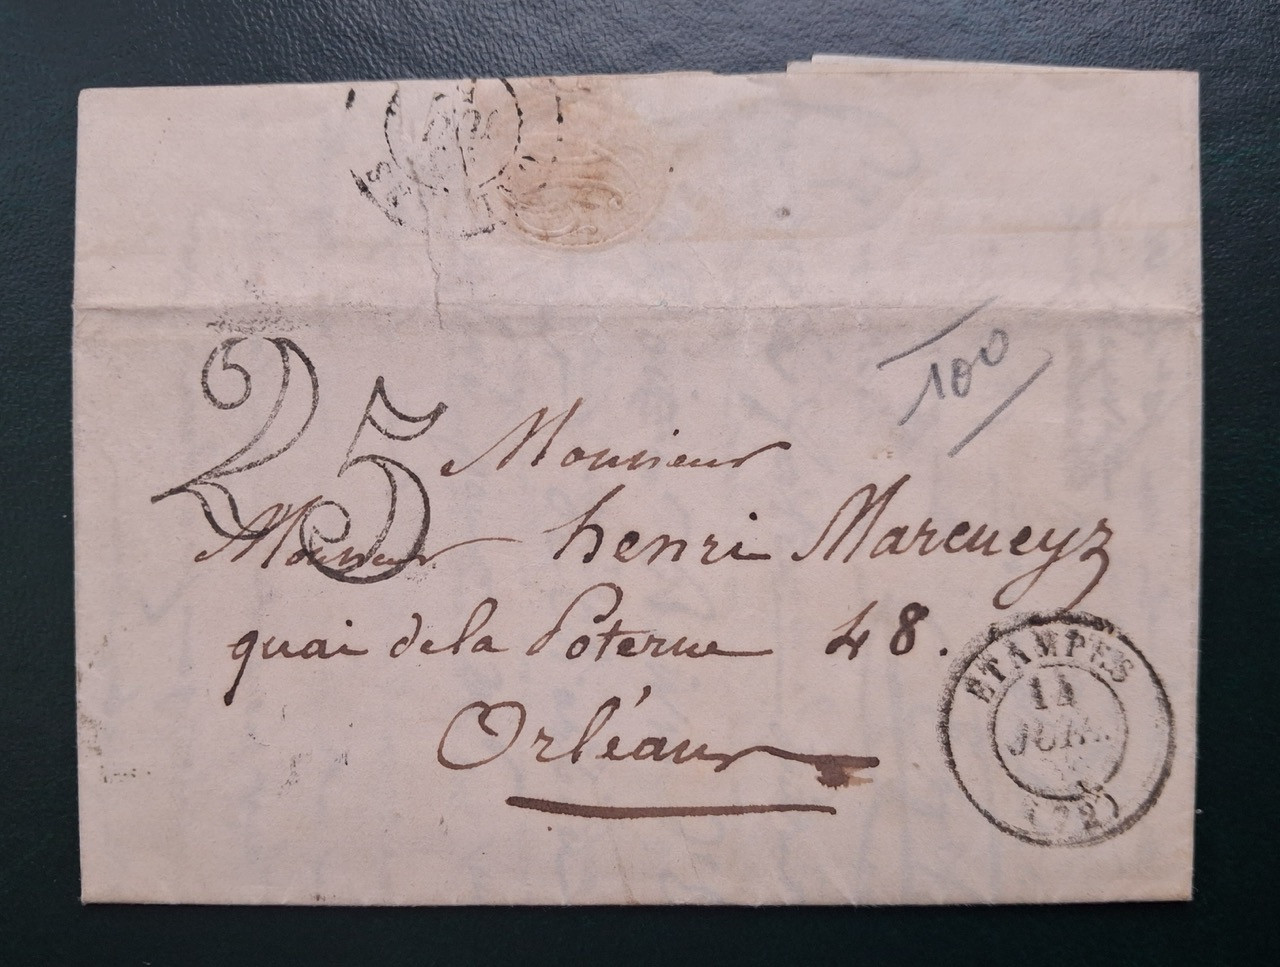 100
25
Monsieur
Monsieur henri Marcueyz
quai de la Poterne 48.
Orléans
ETAMPES
14
JUIL.
(72)